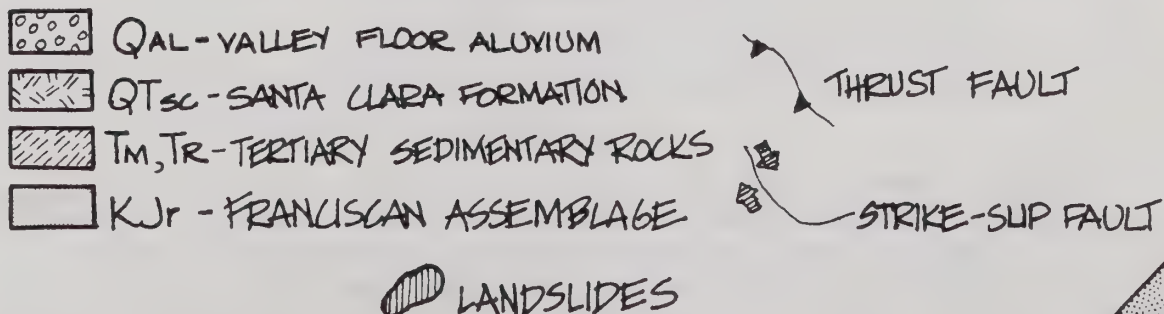 QAL-VALLEY FLOOR ALUVIUM
QTSC-SANTA CLARA FORMATION
TM,TR-TERTIARY SEDIMENTARY ROCKS
KJr - FRANCISCAN ASSEMBLAGE
THRUST FAULT
STRIKE-SLIP FAULT
LANDSLIDES